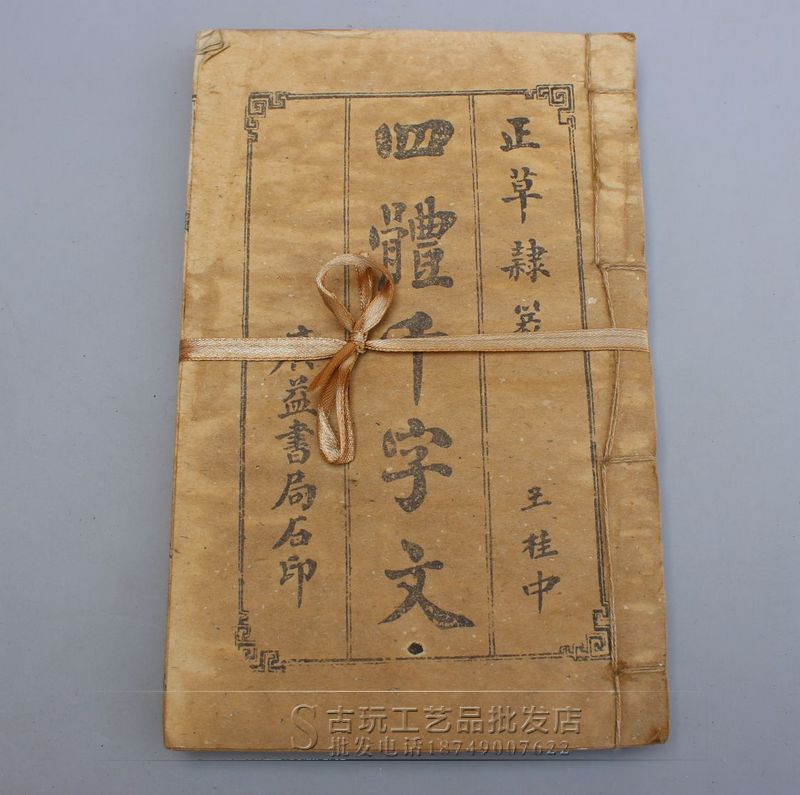 正草隸篆
王桂中
四體千字文
廣益書局石印
S古玩工艺品批发店
批发电话18749007622